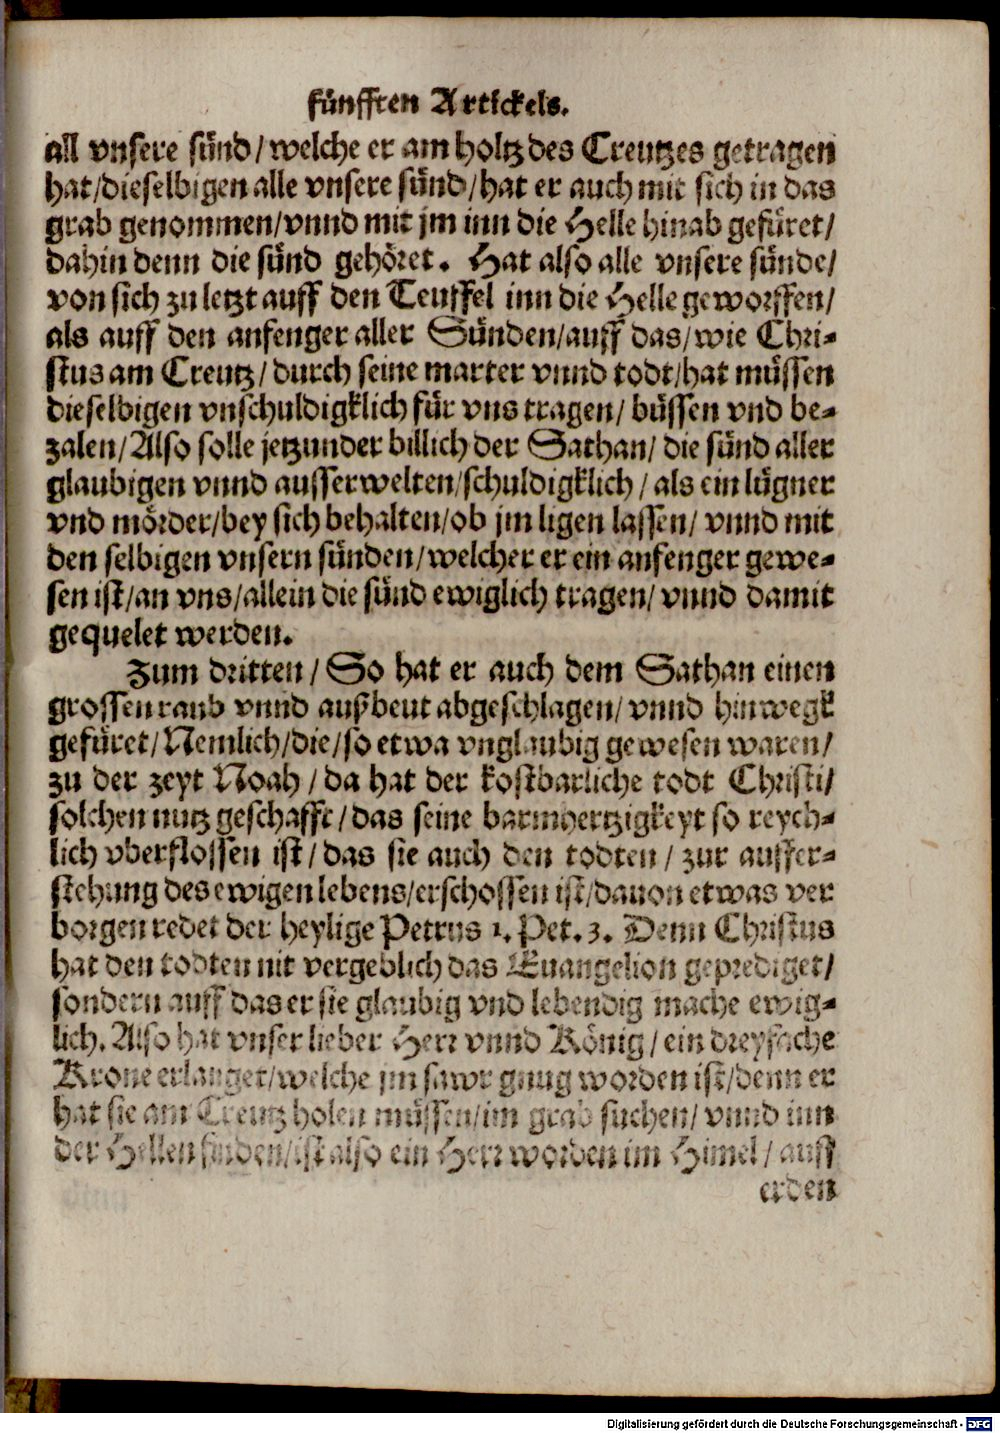 fünfften Artickels.
all vnsere sünd/welche er am holtz des Creutzes getragen
hat/dieselbigen alle vnsere sünd/hat er auch mit sich in das
grab genommen/vnnd mit jm inn die Helle hinab gefüret/
dahin denn die sünd gehöret. Hat also alle vnsere sünde/
von sich zu letzt auff den Teuffel inn die Helle geworffen/
als auff den anfenger aller Sünden/auff das/wie Chri-
stus am Creutz/durch seine marter vnnd todt/hat müssen
dieselbigen vnschuldigklich für vns tragen/büssen vnd be-
zalen/Also solle jetzunder billich der Sathan/die sünd aller
glaubigen vnnd ausserwelten/schuldigklich/als ein lügner
vnd mörder/bey sich behalten/ob jm ligen lassen/vnnd mit
den selbigen vnsern sünden/welcher er ein anfenger gewe-
sen ist/an vns/allein die sünd ewiglich tragen/vnnd damit
gequelet werden.
Zum dritten/So hat er auch dem Sathan einen
grossen raub vnnd außbeut abgeschlagen/vnnd hinwegk
gefüret/Nemlich/die/so etwa vnglaubig gewesen waren/
zu der zeyt Noah/da hat der kostbarliche todt Christi/
solchen nutz geschafft/das seine barmhertzigkeyt so reych-
lich vberflossen ist/das sie auch den todten/zur auffer-
stehung des ewigen lebens/erschossen ist/dauon etwas ver
borgen redet der heylige Petrus 1. Pet. 3. Denn Christus
hat den todten nit vergeblich das Euangelion geprediget/
sondern auff das er sie glaubig vnd lebendig mache ewig-
lich. Also hat vnser lieber Herr vnnd König/ein dreyfache
Krone erlanget/welche jm sawr gnug worden ist/denn er
hat sie am Creutz holen müssen/im grab suchen/vnnd inn
der Hellen finden/ist also ein Herr worden im Himel/auff
erden
Digitalisierung gefördert durch die Deutsche Forschungsgemeinschaft - DFG